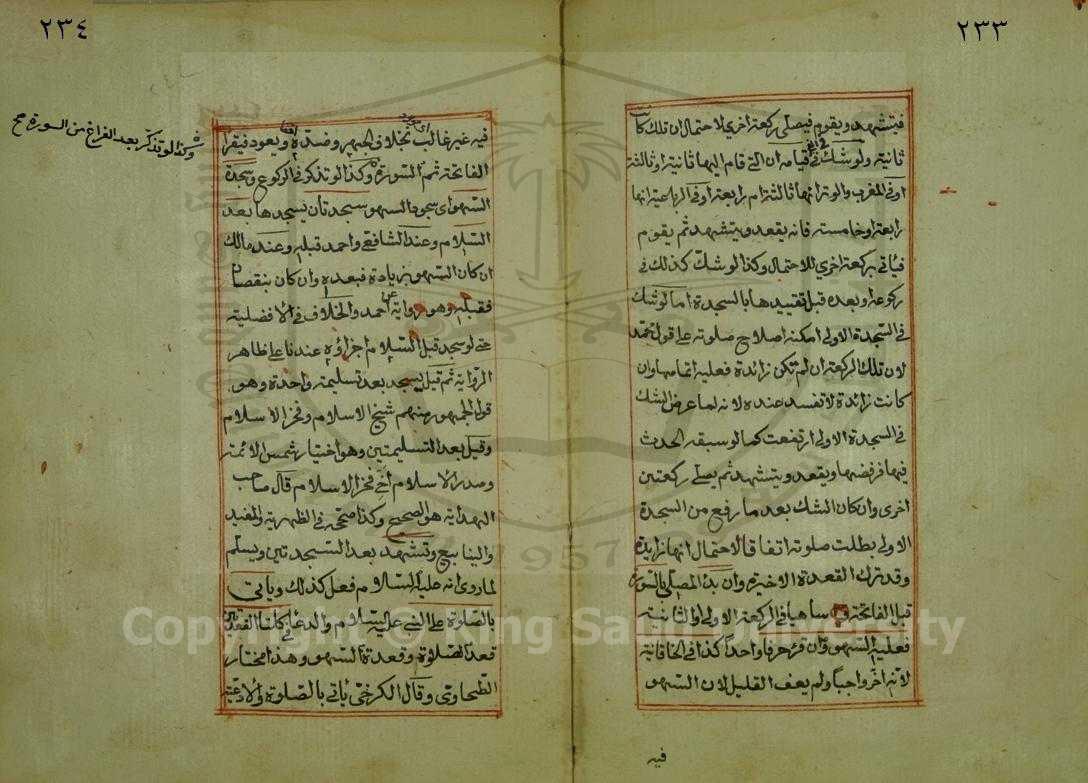 ٢٣٣
فيتشهد ويقوم فيصلي ركعة اخري لاحتمال ان تلك كانت
ثانية ولو شك في قيامه ان التي قام اليها ثانية او ثالثة
او في المغرب والوتر انها ثالثة ام رابعة او في الرباعية انها
رابعة او خامسة فانه يقعد ويتشهد ثم يقوم
فيأتي بركعة اخري للاحتمال وكذا لو شك كذلك في
ركوعه او بعده قبل تقييدها بالسجدة اما لو شك
في السجدة الاولي امكنه اصلاح صلوته علي قول محمد
لان تلك الركعة ان لم تكن زائدة فعليه اتمامها وان
كانت زائدة لا تفسد عنده لانه لما عرض الشك
في السجدة الاولي ارتفعت كما لو سبقه الحدث
فيها فرفضها ويقعد ويتشهد ثم يصلي ركعتين
اخري وان كان الشك بعد ما رفع من السجدة
الاولي بطلت صلوته اتفاقا لاحتمال انها زايدة
وقد ترك القعدة الاخيرة وان بدأ المصلي بالسورة
قبل الفاتحة ساهيا في الركعة الاولي او الثانية
فعليه السهو وان قرء حرفا واحدا كذا في الخاقانية
لانه اخر واجبا ولم يعف القليل لان السهو
فيه
٢٣٤
فيه غير غالب بخلاف الجهر وضده ويعود فيقرا
الفاتحة ثم السورة وكذا لو تذكر في الركوع وسجدة
السهو اي سجود السهو سجدتان يسجدها بعد
السلام وعند الشافعي واحمد قبله وعند مالك
ان كان السهو بزيادة فبعده وان كان بنقصان
فقبله وهو رواية عن احمد والخلاف في الافضلية
حتي لو سجد قبل السلام اجزاؤه عندنا علي ظاهر
الرواية ثم قيل يسجد بعد تسليمة واحدة وهو
قول الجمهور منهم شيخ الاسلام وفخر الاسلام
وقيل بعد التسليمتين وهو اختيار شمس الائمة
وصدر الاسلام اخي فخر الاسلام قال صاحب
الهداية هو الصحيح وكذا صححه في الظهيرية والمفيد
والينابيع وتشهد بعد السجدتين ويسلم
لما روي انه عليه السلام فعل كذلك ويأتي
بالصلوة علي النبي عليه السلام والدعاء في كلتا القعدتين
قعد الصلوة وقعدة السهو وهذا مختار
الطحاوي وقال الكرخي يأتي بالصلوة والادعية
وكذا لو تذكر بعد الفراغ من السورة صح
Copyright © King Saud University
1957